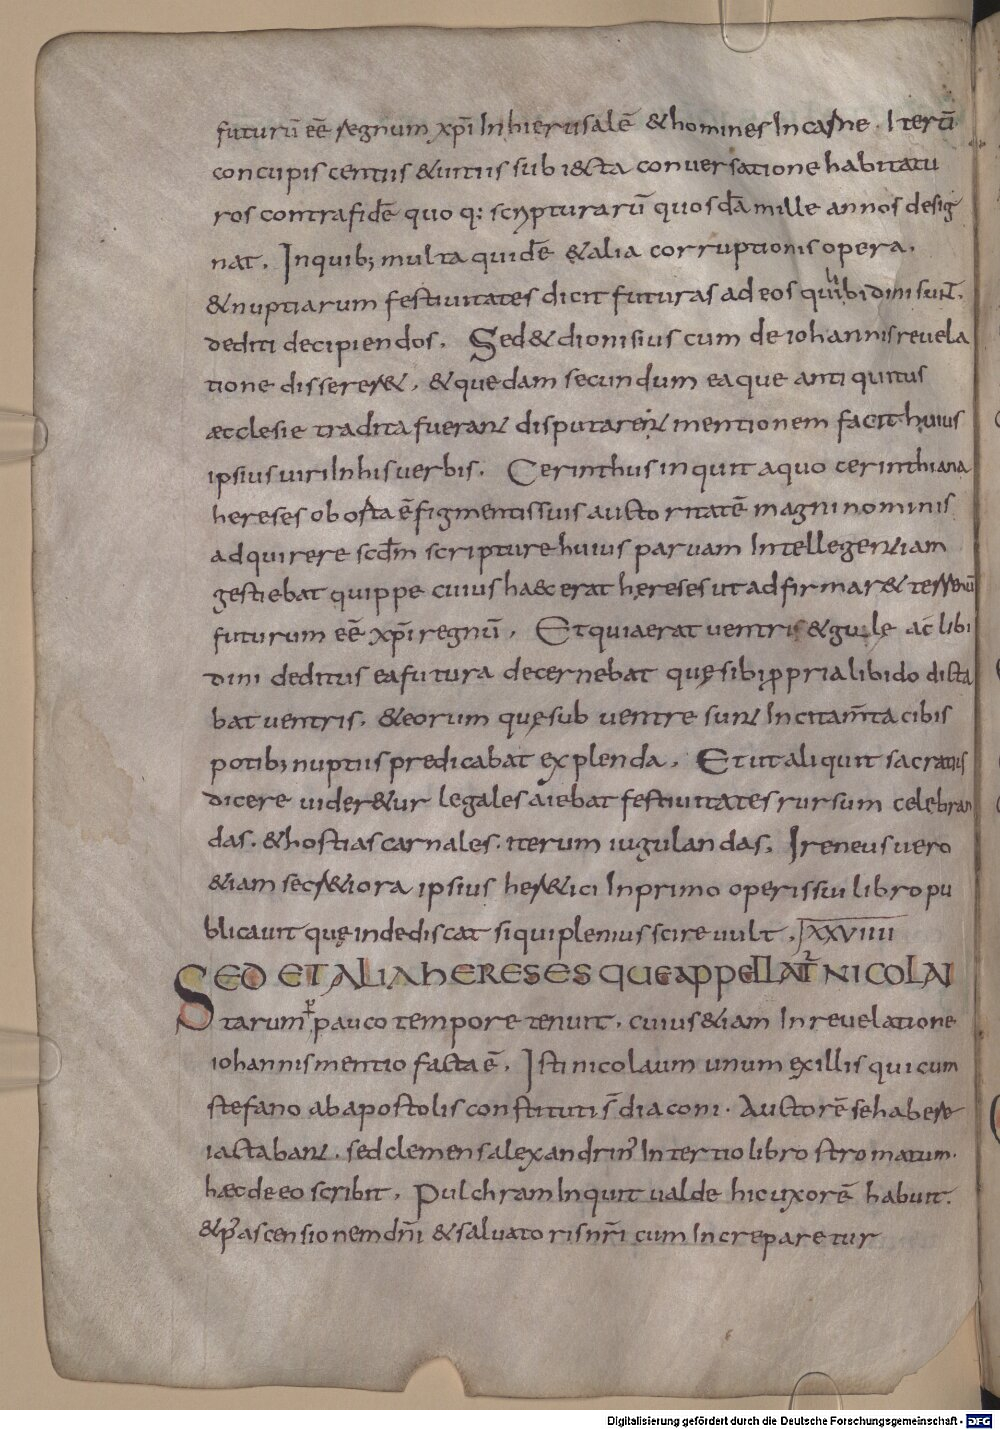 futurū eē regnum xp̄i In hierusalē & homines In carne . Iterū
concupiscentiis & uitiis sub iecta conuersatione habitatu
ros contra fidē quo q; scrypturarū quosdā mille annos desig
nat . In quib; multa quidē & alia corruptionis opera .
& nuptiarum festiuitates dicit futuras ad eos qui libidini sunt .
dediti decipiendos . Sed & dionisius cum de iohannis reuela
tione disserer& . & quedam secundum ea que antiquitus
æcclesie tradita fuerant disputaret mentionem facit huius
ipsius uiri In his uerbis . Cerinthus inquit a quo cerinthiana
hereses ob orta ē figmentis suis auctoritatē magni nominis
adquirere scdm̄ scripture huius paruam Intellegentiam
gestiebat quippe cuius haec erat hereses ut adfirmar& terrenū
futurum eē xp̄i regnū . Et quia erat uentris & gule ac libi
dini deditus ea futura decernebat quę sibi ꝓpria libido dicta
bat uentris . & eorum quę sub uentre sunt Incitam̄ta cibis
potib; nuptiis predicabat explenda . Et ut aliquit sacratius
dicere uider&ur legales aiebat festiuitates rursum celebran
das . & hostias carnales . iterum iugulandas . Ireneus uero
&iam secr&iora ipsius her&ici In primo operis sui libro pu
blicauit quę inde discat siqui plenius scire uult . XXVIIII
SED ET ALIA HERESES QUE APPELLAT̄ NICOLAI
tarum p̱ pauco tempore tenuit . cuius &iam In reuelatione
iohannis mentio facta ē . Isti nicolaum unum ex illis qui cum
stefano ab apostolis constituti s̄ diaconi . Auctorē se habere
iactabant . sed clemens alexandrin' In tertio libro stromatum .
hæc de eo scribit . Pulchram Inquit ualde hic uxorē habuit .
& p' ascensionem dn̄i & saluatoris nr̄i cum Increparetur